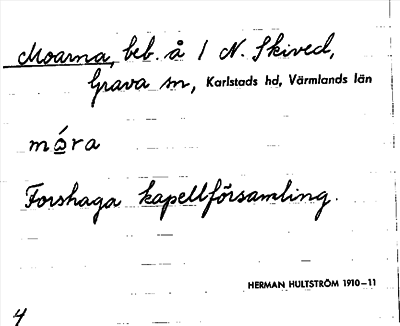 Moarna, beb. å 1 N. Skived,
Grava sn, Karlstads hd, Värmlands län
mó̲ra
Forshaga kapellförsamling.
HERMAN HULTSTRÖM 1910–11
4